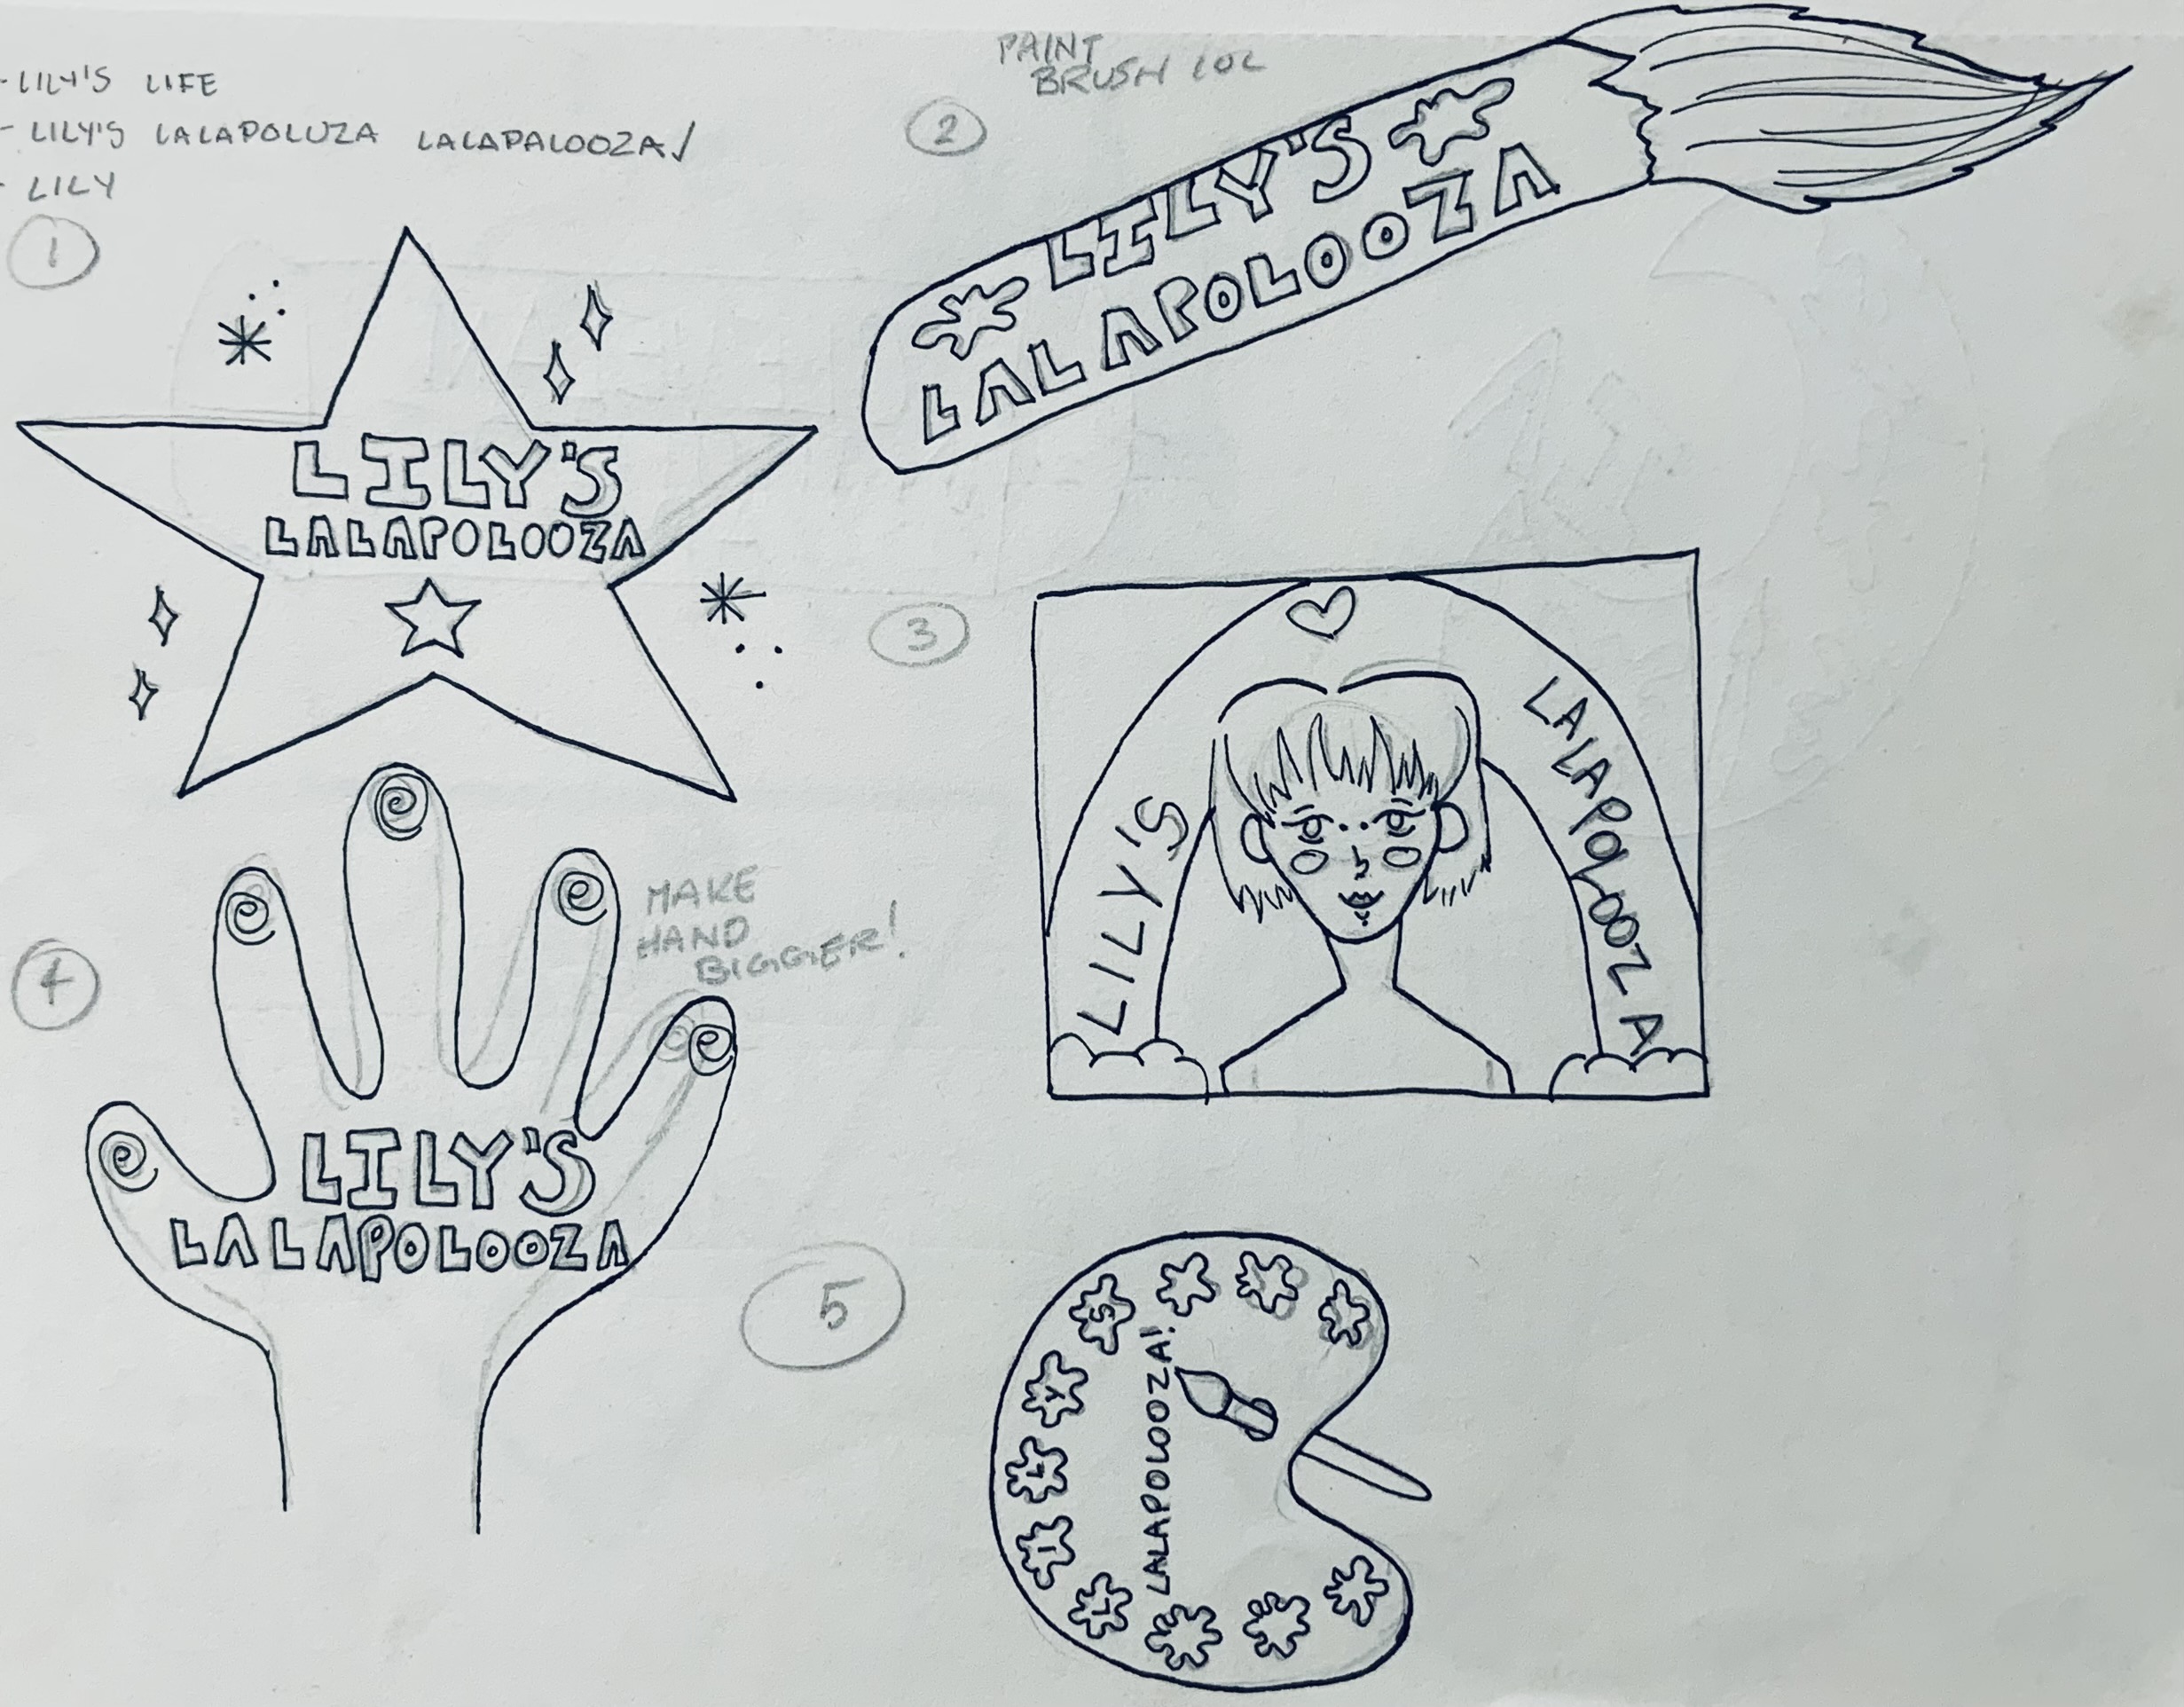 - LILY'S LIFE
- LILY'S LALAPOLUZA LALAPALOOZA✓
- LILY
1
LILY'S
LALAPOLOOZA
PAINT
BRUSH LOL
2
LILY'S
LALAPOLOOZA
3
LILY'S
LALAPOLOOZA
4
MAKE
HAND
BIGGER!
LILY'S
LALAPOLOOZA
5
LILY'S
LALAPOLOOZA!